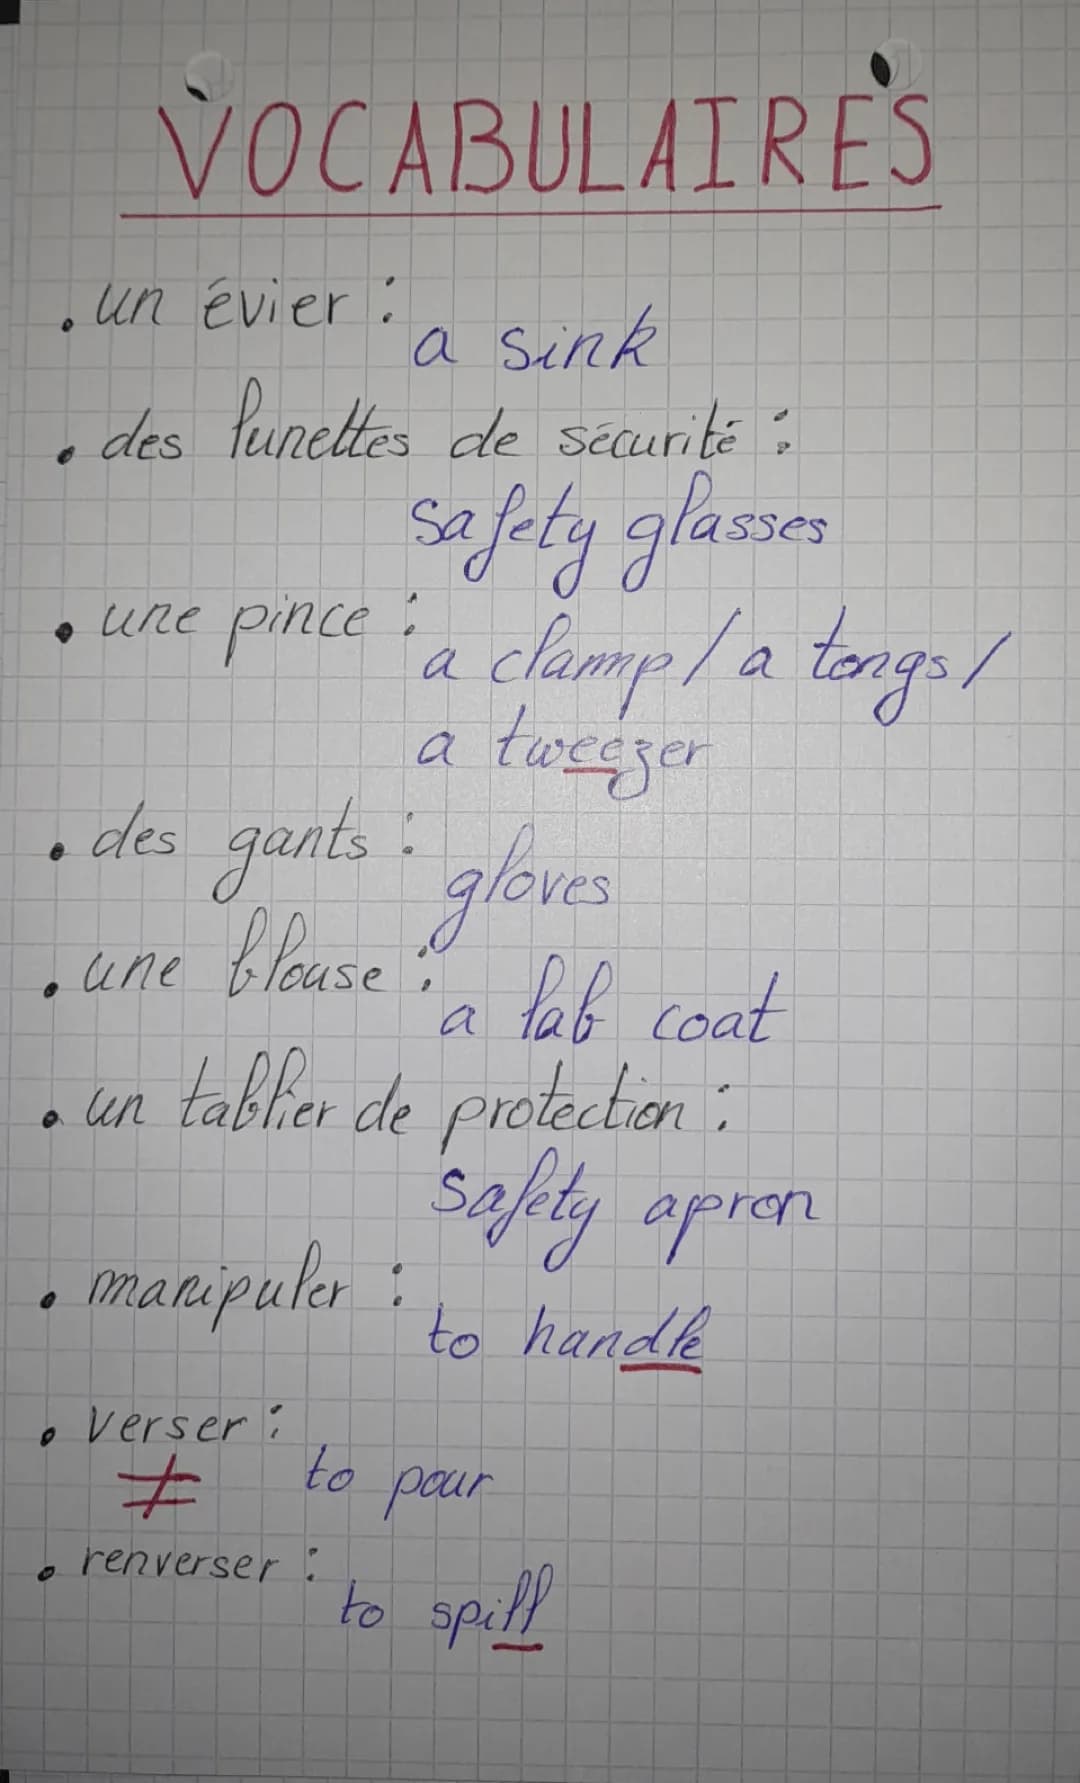 VOCABULAIRES
. un évier :
a sink
. des lunettes de sécurité :
safety glasses
. une pince :
a clamp / a tongs /
a tweezer
. des gants :
gloves
. une blouse :
a lab coat
. un tablier de protection :
safety apron
. manipuler :
to handle
. verser :
≠ to pour
. renverser :
to spill